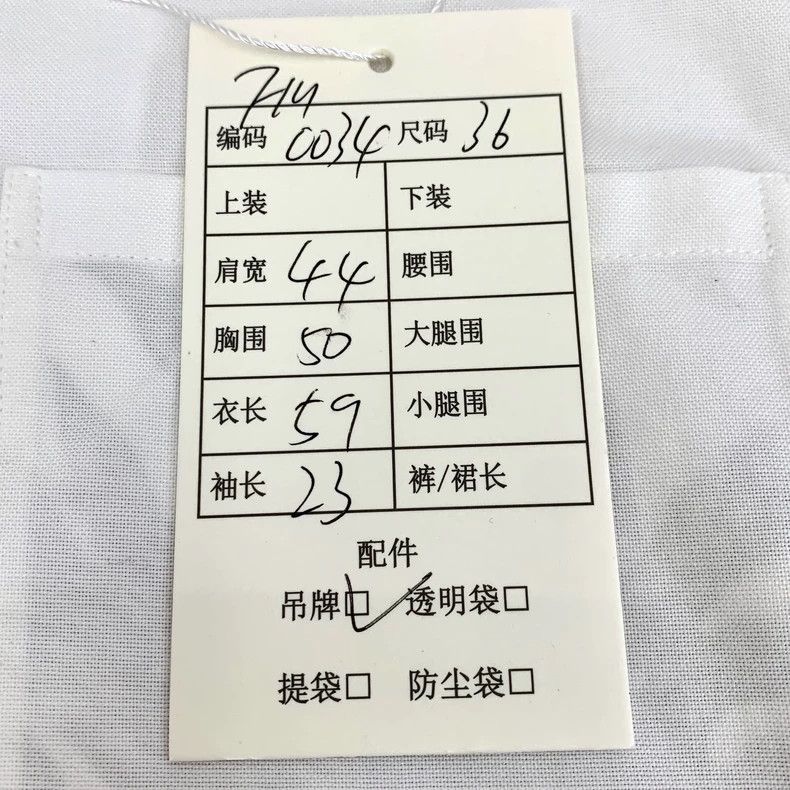 ZHY
编码 0034 尺码 36
上装 下装
肩宽 44 腰围
胸围 50 大腿围
衣长 59 小腿围
袖长 23 裤/裙长
配件
吊牌☑ 透明袋□
提袋□ 防尘袋□